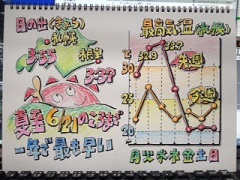 日の出(きょう)
札幌
3:55
根室
3:37
夏至 6/21のころまで
一年で最も早い
最高気温(札幌)
30
25
20
32.9
32.7
先週
今週
月火水木金土日